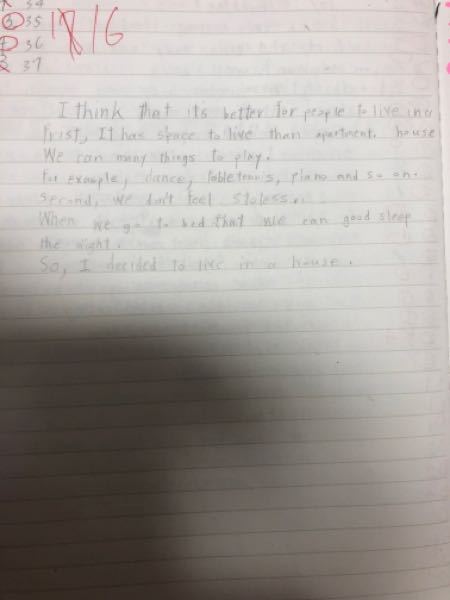 34
3 35
36
37
18/16
I think that it's better for people to live in a
Frist, It has space to live than apartment. house
We can many things to play.
For example, dance, table tennis, piano and so on.
Second, We don't feel stoless.
When we go to bed that we can good sleep
the night.
So, I decided to live in a house.